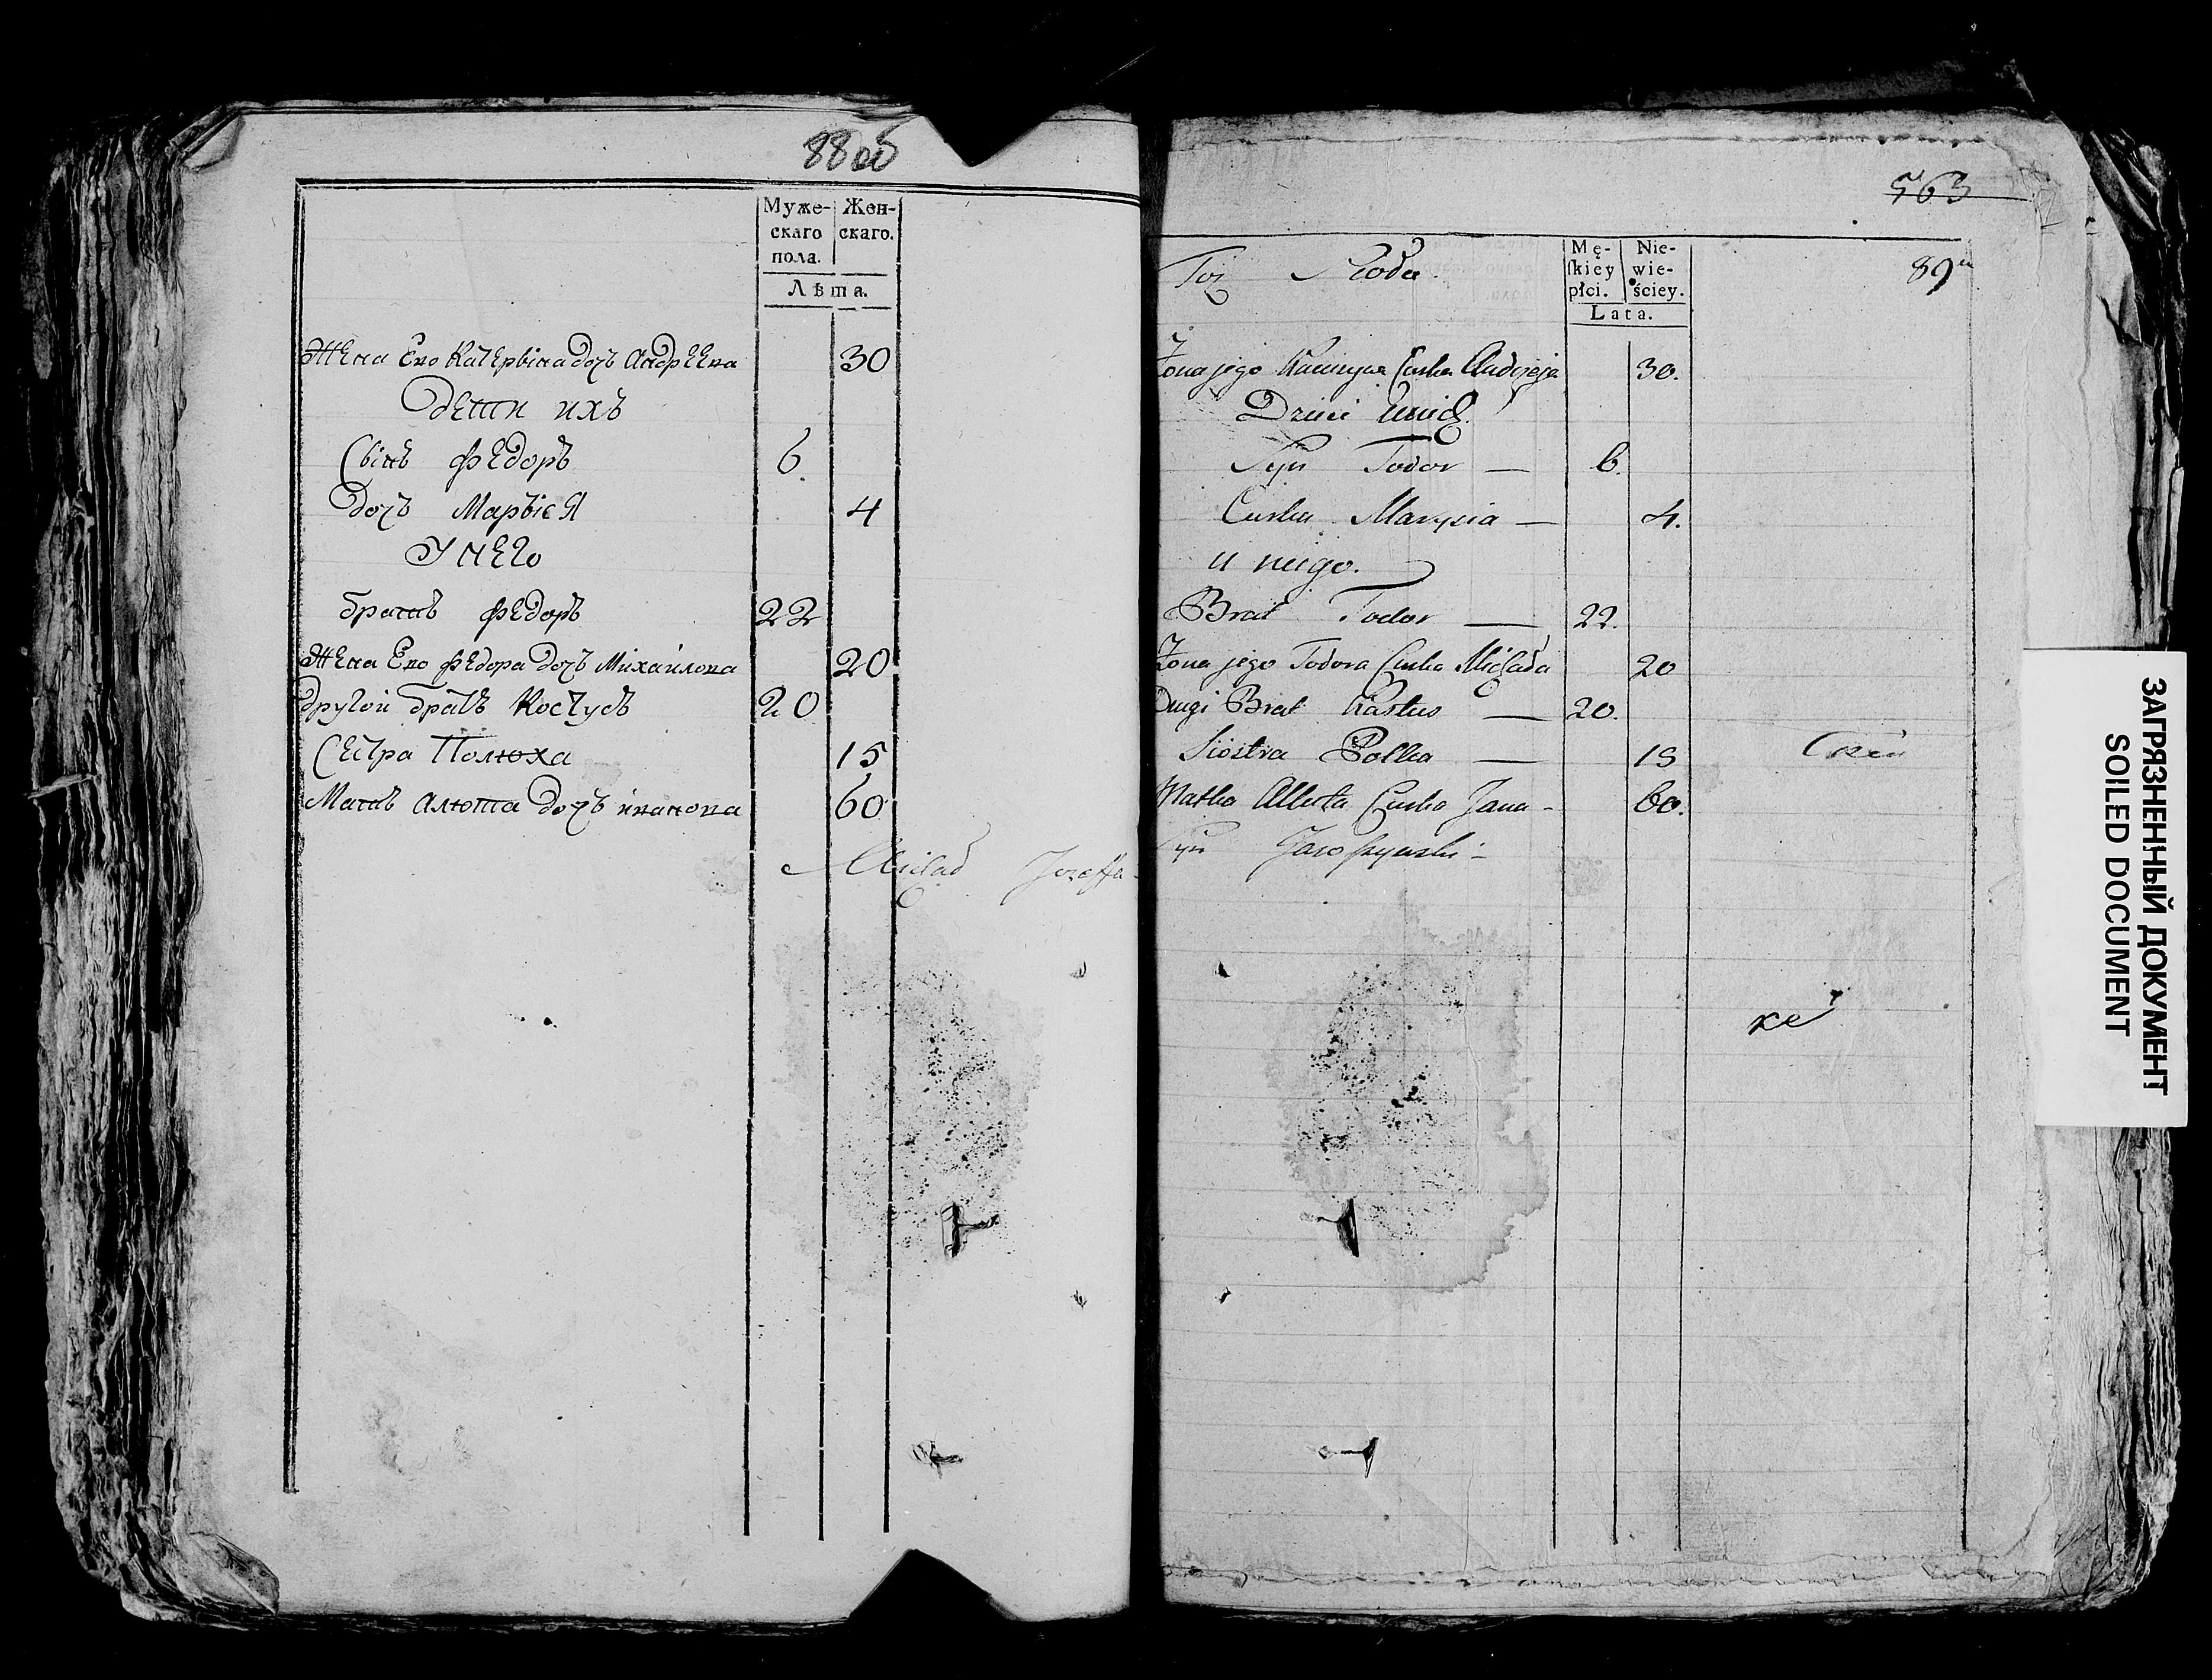 88 об
Муже-
скаго
пола.
Жен-
скаго.
Лѣта.
Жена Ево Катерына дочь Андреева 30
Дети ихъ
Сынъ Федоръ 6
Дочь Марыся 4
У Него
братъ Федоръ 22
Жена Ево Федора дочь Михайлова 20
другой братъ Костусь 20
Сестра Полюха 15
Мать Алюта дочь иванова 60
Michał Jozeffa
563
89
Toż
Mę-
ſkiey
płci.
Nie-
wie-
ściey.
Lata.
Żona jego Kateryna Curka Andrzeja 30.
Dzieci
Syn Todor — 6.
Curka Marysia — 4.
u niego.
Brat Todor — 22.
Żona jego Todora Curka Michała 20
Drugi Brat Kastus — 20.
Siostra Polka — 15
Matka Curka Jana - 60.
Syn
ЗАГРЯЗНЕННЫЙ ДОКУМЕНТ
SOILED DOCUMENT